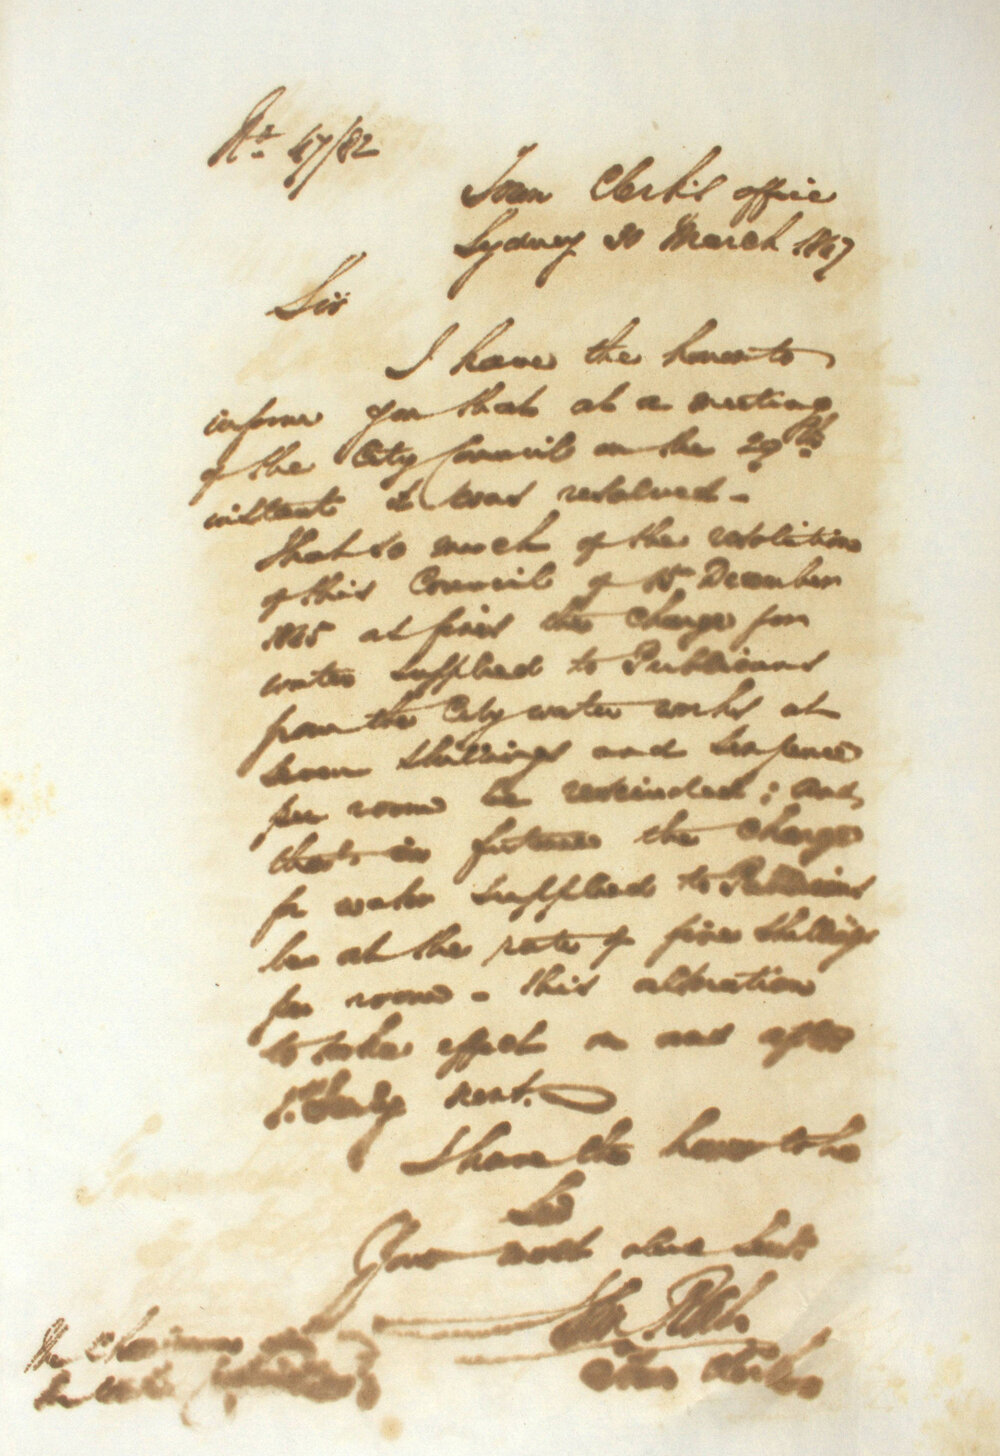 No 47/82
Town Clerk's office
Sydney 30 March 1867
Sir
I have the honor to
inform you that at a meeting
of the City Council on the 29th
instant it was resolved -
That so much of the resolution
of this Council of 15th December
1865 as fixes the Charge for
water supplied to Publicans
from the City water works at
seven shillings and sixpence
per room be rescinded; and
that in future the charge
for water supplied to Publicans
be at the rate of five shillings
per room - this alteration
to take effect on and after
1st July next.
I have the honor to be
Sir
Your most obed Servt
Town Clerk
The Chairman